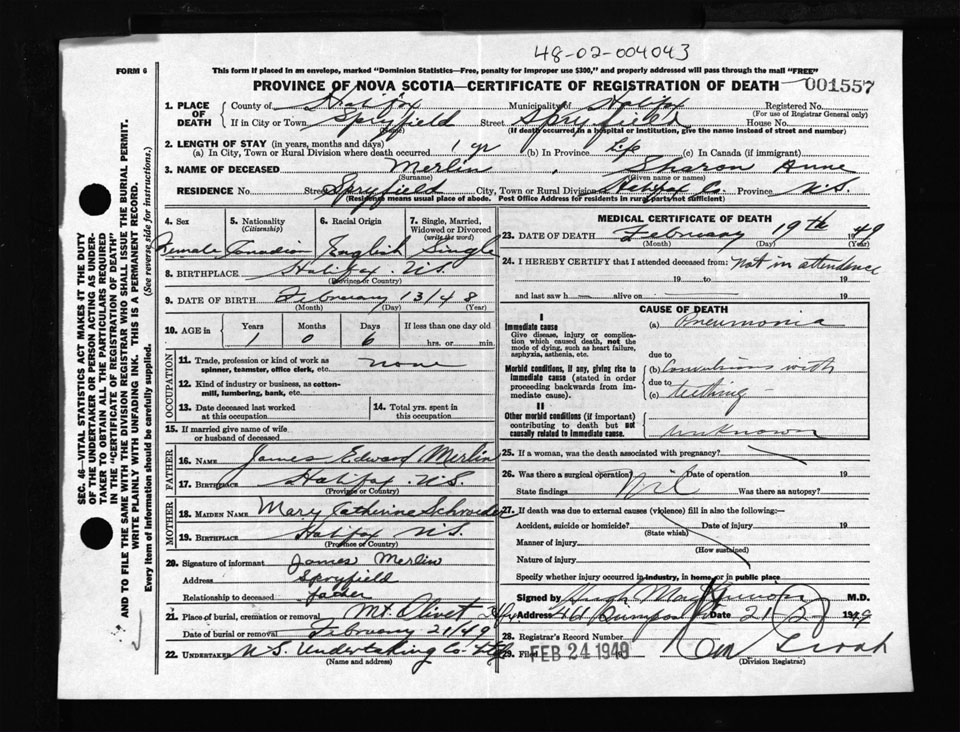 48-02-004043
FORM 6
This form if placed in an envelope, marked "Dominion Statistics—Free, penalty for improper use $300," and properly addressed will pass through the mail "FREE"
PROVINCE OF NOVA SCOTIA—CERTIFICATE OF REGISTRATION OF DEATH
001557
SEC. 46—VITAL STATISTICS ACT MAKES IT THE DUTY
OF THE UNDERTAKER OR PERSON ACTING AS UNDER-
TAKER TO OBTAIN ALL THE PARTICULARS REQUIRED
IN THE "CERTIFICATE OF REGISTRATION OF DEATH"
AND TO FILE THE SAME WITH THE DIVISION REGISTRAR WHO SHALL ISSUE THE BURIAL PERMIT.
WRITE PLAINLY WITH UNFADING INK. THIS IS A PERMANENT RECORD.
Every item of Information should be carefully supplied. (See reverse side for instructions.)
1. PLACE OF DEATH
County of Halifax Municipality of Halifax Registered No.
(For use of Registrar General only)
If in City or Town Spryfield Street Spryfield House No.
(Name) (If death occurred in a hospital or institution, give the name instead of street and number)
2. LENGTH OF STAY (in years, months and days)
(a) In City, Town or Rural Division where death occurred 1 yr (b) In Province life (c) In Canada (if immigrant)
3. NAME OF DECEASED Merlin, Sharon Anne
(Surname) (Given name or names)
RESIDENCE No. Street Spryfield City, Town or Rural Division Halifax Co. Province N.S.
(Residence means usual place of abode. Post Office Address for residents in rural parts not sufficient)
4. Sex 5. Nationality (Citizenship) 6. Racial Origin 7. Single, Married, Widowed or Divorced (write the word)
Female Canadian English Single
8. BIRTHPLACE Halifax N.S.
(Province or Country)
9. DATE OF BIRTH February 13/48
(Month) (Day) (Year)
10. AGE in Years Months Days If less than one day old
1 0 6 hrs. or min.
OCCUPATION
11. Trade, profession or kind of work as spinner, teamster, office clerk, etc. none
12. Kind of industry or business, as cotton-mill, lumbering, bank, etc.
13. Date deceased last worked at this occupation
14. Total yrs. spent in this occupation
15. If married give name of wife or husband of deceased
FATHER
16. NAME James Edward Merlin
17. BIRTHPLACE Halifax N.S.
(Province or Country)
MOTHER
18. MAIDEN NAME Mary Catherine Schroeder
19. BIRTHPLACE Halifax N.S.
(Province or Country)
20. Signature of informant James Merlin
Address Spryfield
Relationship to deceased father
21. Place of burial, cremation or removal Mt. Olivet Hfx
Date of burial or removal February 21/49
22. UNDERTAKER N.S. Undertaking Co. Ltd
(Name and address)
MEDICAL CERTIFICATE OF DEATH
23. DATE OF DEATH February 19th 1949
(Month) (Day) (Year)
24. I HEREBY CERTIFY that I attended deceased from: Not in attendence
19 to 19
and last saw h alive on 19
CAUSE OF DEATH
I
Immediate cause
Give disease, injury or complication which caused death, not the mode of dying, such as heart failure, asphyxia, asthenia, etc.
(a) Pneumonia
due to
Morbid conditions, if any, giving rise to immediate cause (stated in order proceeding backwards from immediate cause).
(b) Convulsions with
due to
(c) teething
II
Other morbid conditions (if important) contributing to death but not causally related to immediate cause.
Unknown
25. If a woman, was the death associated with pregnancy?
26. Was there a surgical operation? Nil Date of operation 19
State findings Was there an autopsy?
27. If death was due to external causes (violence) fill in also the following:—
Accident, suicide or homicide? Date of injury 19
(State which)
Manner of injury
(How sustained)
Nature of injury
Specify whether injury occurred in industry, in home, or in public place
Signed by Hugh M.D.
Address 461 Date 21-2-1949
28. Registrar's Record Number
29. Filed FEB 24 1949
(Division Registrar)